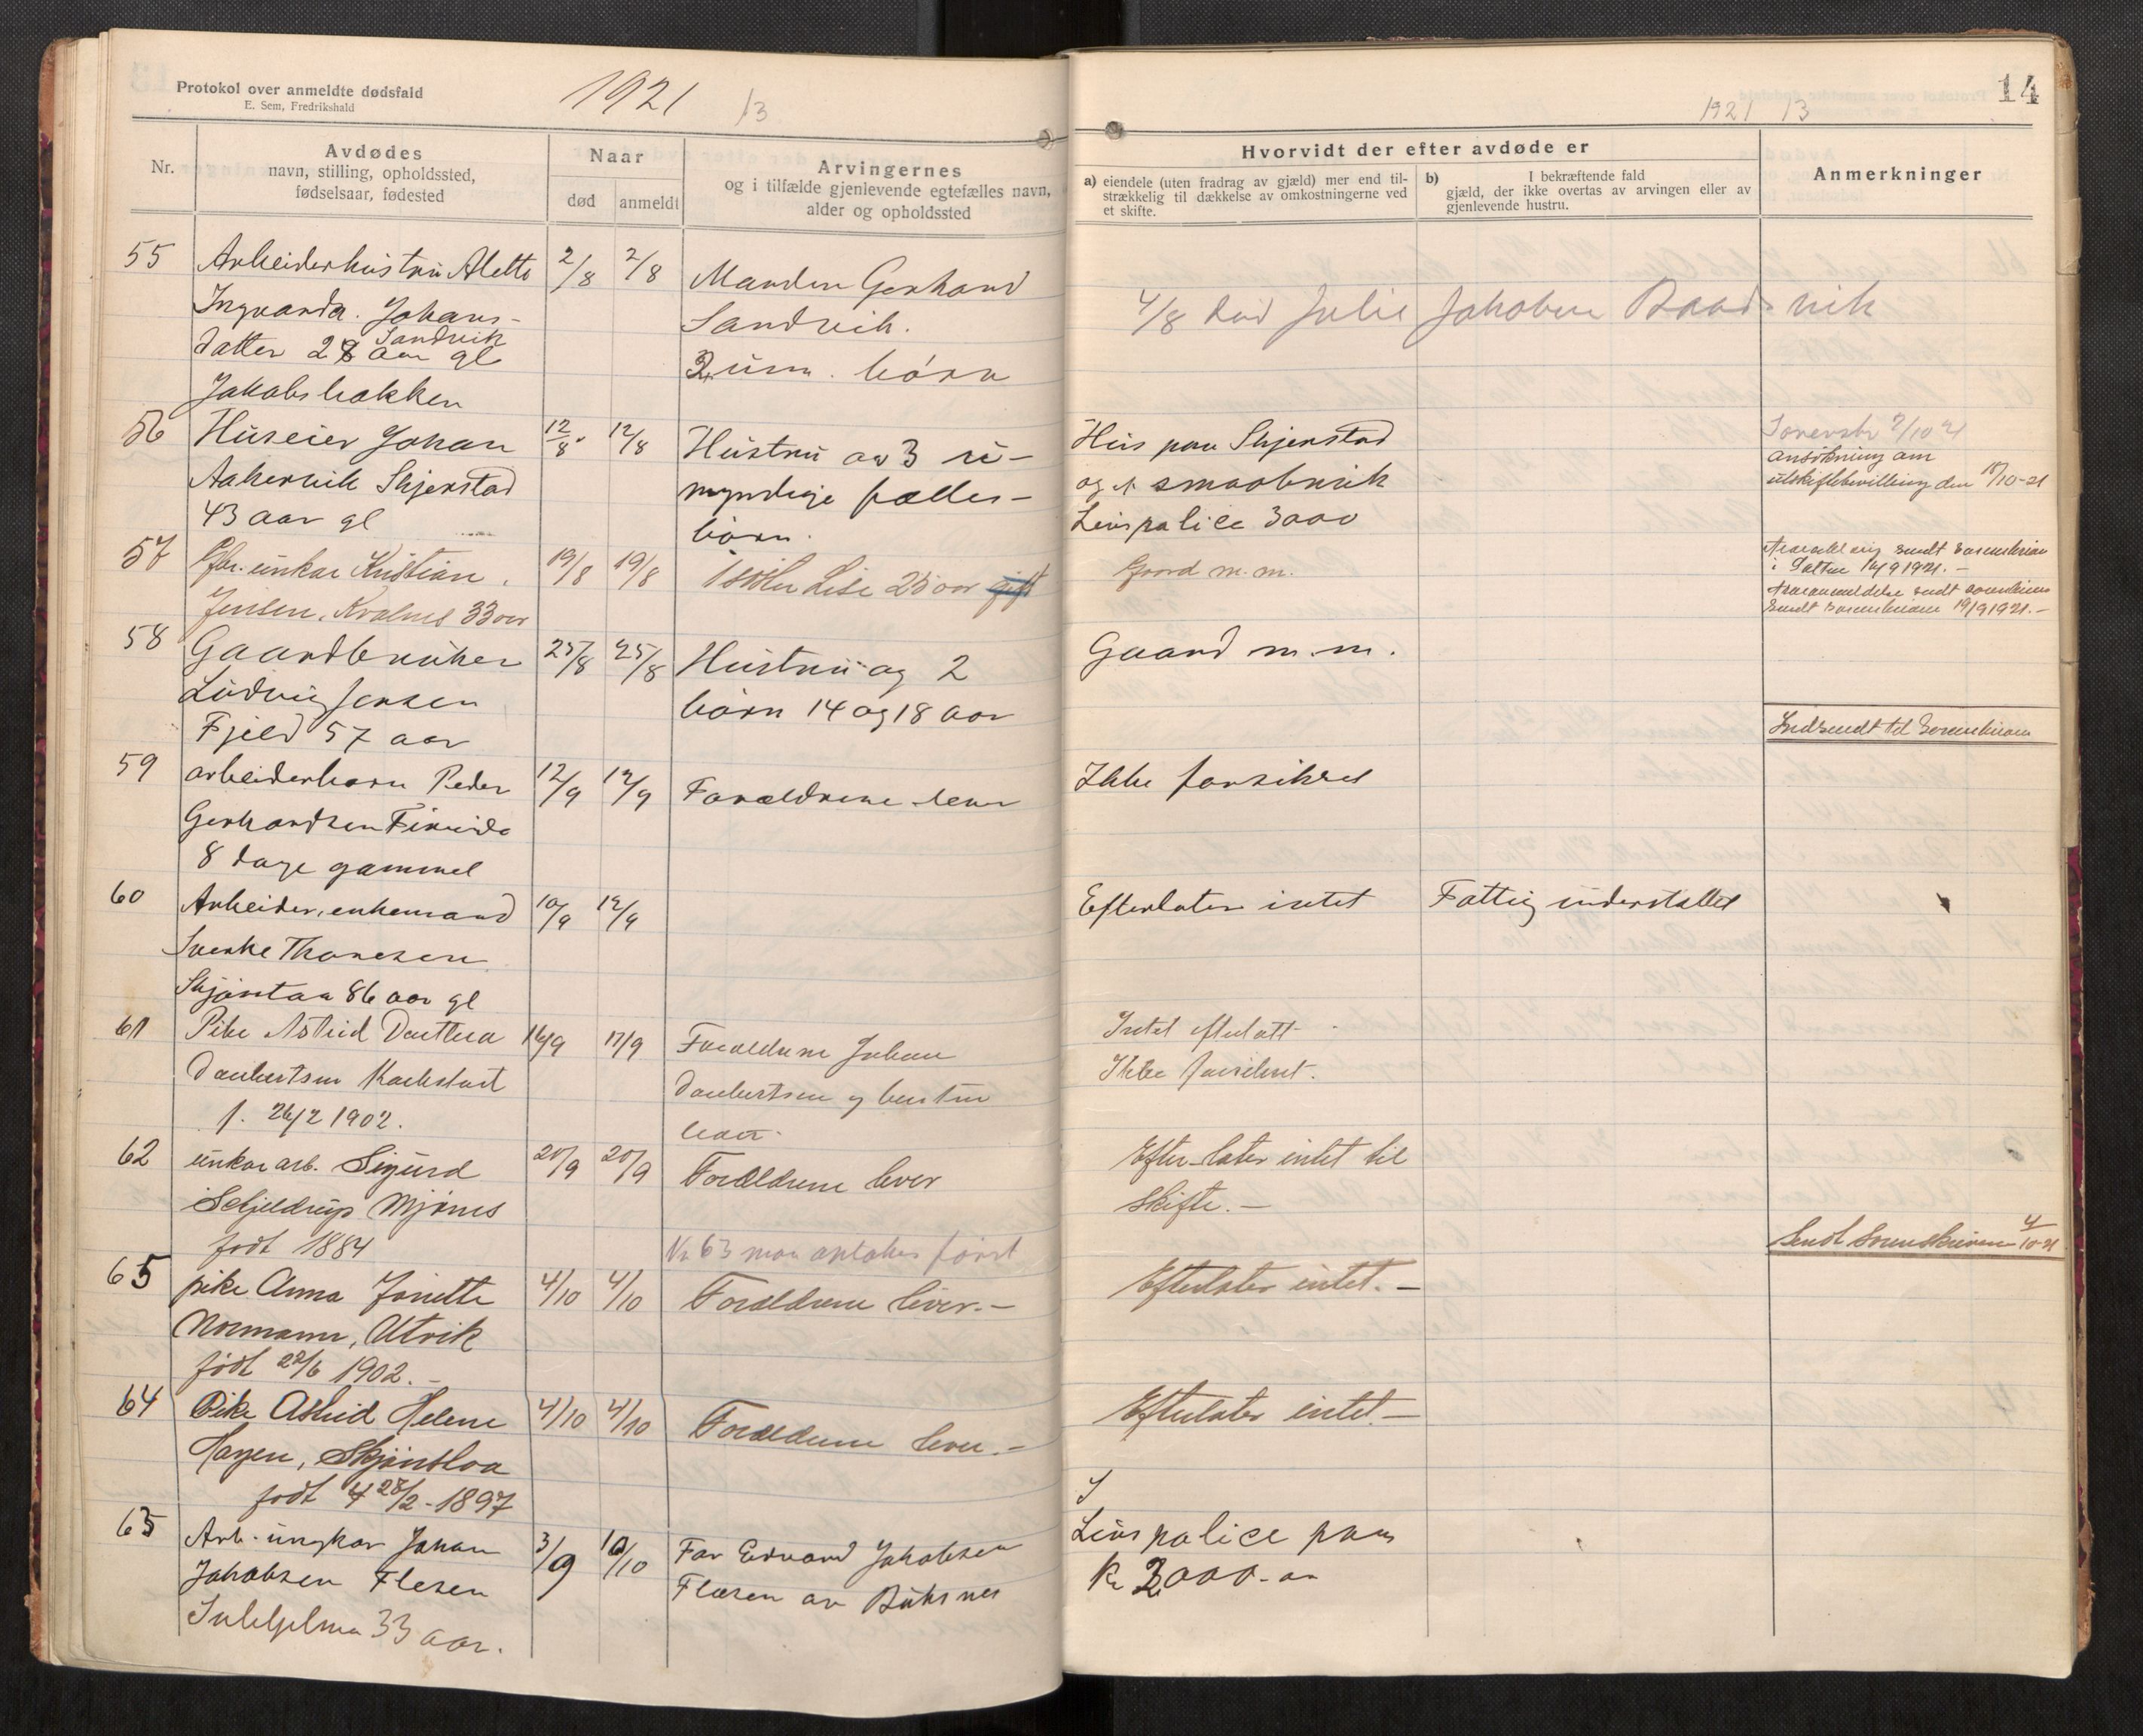 Protokol over anmeldte dødsfald
E. Sem, Fredrikshald
1921
13
Nr.
Avdødes
navn, stilling, opholdssted,
fødselsaar, fødested
Naar
død
anmeldt
Arvingernes
og i tilfælde gjenlevende egtefælles navn,
alder og opholdssted
55
Arbeiderhustru Alette
Ingvarda. Johans-
Sandvik
datter 28 aar gl
Jakobsbakken
2/8
2/8
Manden Gerhard
Sandvik.
3 um. børn
56
Huseier Johan
Aakervik Skjerstad
43 aar gl
12/8
12/8
Hustru av 3 u-
myndige fælles-
børn.
57
Gbr. unkar Kristian
Jensen, Kvalnes 33 aar
19/8
19/8
1 søster Lise 25 aar gift
58
Gaardbruker
Ludvig Jensen
Fjeld 57 aar
25/8
25/8
Hustru og 2
børn 14 og 18 aar
59
arbeiderbarn Peder
Gerhardsen
8 dage gammel
12/9
12/9
Forældrene lever
60
Arbeider, enkemand
Sverke Thoresen
86 aar gl
10/9
12/9
61
Pike Astrid
f. 26/2 1902.
16/9
17/9
Forældrene Johan
og hustru
lever.
62
unkar arb. Sigurd
Schjeldrup Mjønes
født 1884
20/9
20/9
Forældrene lever
Nr 63 maa optakes først
65
pike Anna Jonette
Normann, Utvik
født 22/6 1902. -
4/10
4/10
Forældrene lever. -
64
Pike Astrid Helene
Hagen,
født 28/2 - 1897
4/10
4/10
Forældrene lever. -
65
Arb. ungkar Johan
Jakobsen Flesen
Sulitjelma 33 aar.
3/9
10/10
Far Edvard Jakobsen
Flæsen av Buksnes
14
1921 13
Hvorvidt der efter avdøde er
a) eiendele (uten fradrag av gjæld) mer end til-
strækkelig til dækkelse av omkostningerne ved
et skifte.
b) I bekræftende fald
gjæld, der ikke overtas av arvingen eller av
gjenlevende hustru.
Anmerkninger
4/8 død Julie Jakobine
Hus paa Skjerstad
og et smaabruk
Livspolice 3000
Sorenskr 7/10 21
ansøkning om
uskiftebevilling den 18/10-21
Gaard m.m.
sendt Sorenskriver
i Salten 14/9 1921. -
sendt Sorenskriver 19/9 1921. -
Gaard m.m.
Indsendt til Sorenskriveren
Ikke forsikret
Efterlater intet
Fattig understøttet
Intet efterlatt
Ikke forsikret.
Efterlater intet til
skifte. -
Sendt Sorenskriveren 4/10-21
Efterlater intet. -
Efterlater intet. -
Livspolice paa
Kr 2000.00